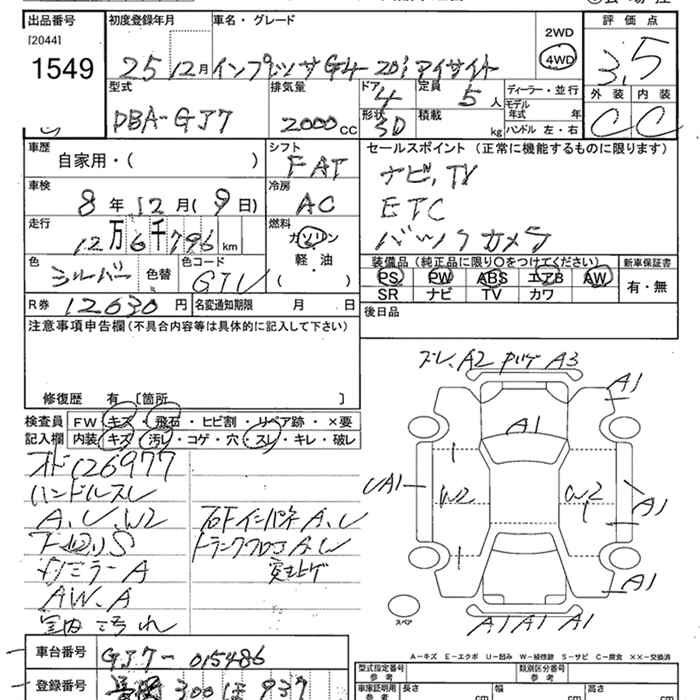 出品番号
[2044]
1549
初度登録年月
車名・グレード
25 12月 インプレッサ G4 2.0i アイサイト
2WD
4WD
評価点
3.5
型式
DBA-GJ7
排気量
2000 CC
ドア 4
形状 3D
定員 5 人
積載 kg
ディーラー・並行
モデル年式 年
ハンドル 左・右
外装 内装
C C
車歴
自家用・( )
シフト
FAT
セールスポイント (正常に機能するものに限ります)
ナビ, TV
ETC
バックカメラ
車検
8年12月(9日)
冷房
AC
走行
12万6千796km
燃料
ガソリン
軽・油
( )
色
シルバー
色替
色コード
G1U
装備品(純正品に限り○をつけてください)
PS PW ABS エアB AW
SR ナビ TV カワ
新車保証書
有・無
R券 12630円
名変通知期限 月 日
後日品
注意事項申告欄(不具合内容等は具体的に記入して下さい)
修復歴 有 [箇所
検査員記入欄
FW キズ・飛石・ヒビ割・リペア跡・×要
内装 キズ・汚レ・コゲ・穴・スレ・キレ・破レ
オド126977
ハンドルスレ
A、U、W2
下回りS
ミラーA
AW、A
室内汚れ
右ドインパネA、U
トランクフロアA、W
突上ゲ
A2 A3
A1
A1
UA1
W2
W2
A1
A1
A1 A1 A1
スペア
A-キズ E-エクボ U-凹み W-補修跡 S-サビ C-腐食 XX-交換済
車台番号
GJ7-015486
登録番号
300 ほ 937
型式指定番号 参考
類別区分番号 参考
車庫証明用 参考
長さ cm
幅 cm
高さ cm